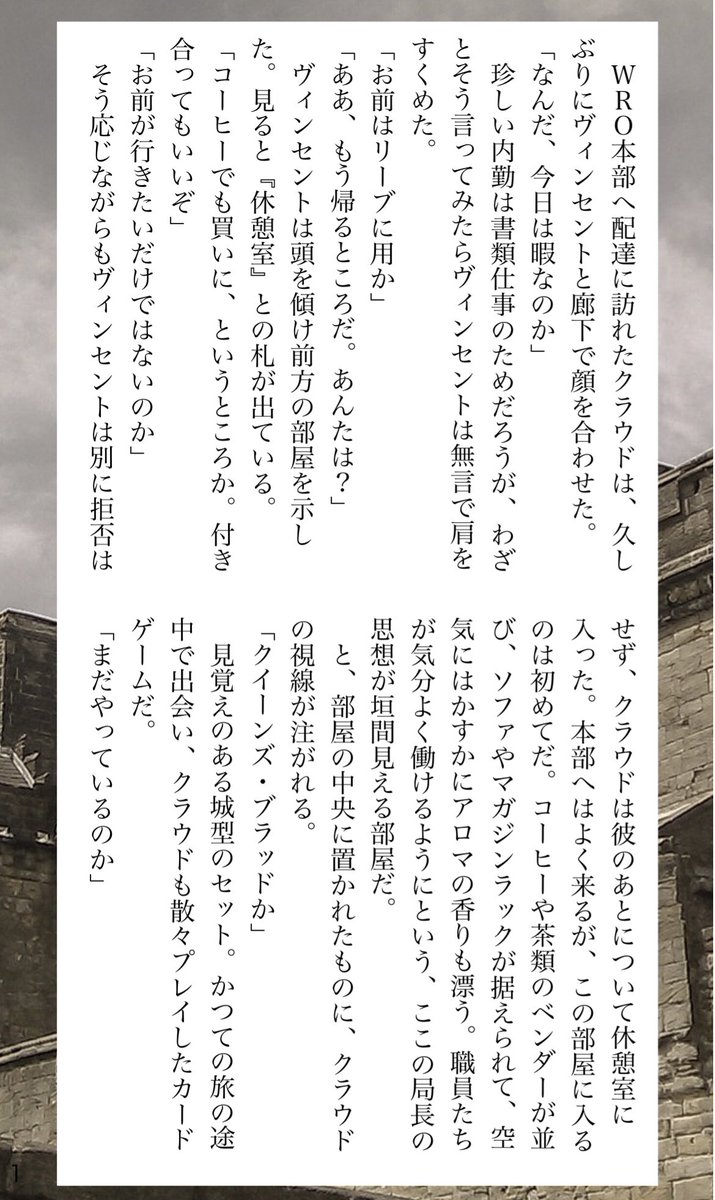 ＷＲＯ本部へ配達に訪れたクラウドは、久し
ぶりにヴィンセントと廊下で顔を合わせた。
「なんだ、今日は暇なのか」
　珍しい内勤は書類仕事のためだろうが、わざ
とそう言ってみたらヴィンセントは無言で肩を
すくめた。
「お前はリーブに用か」
「ああ、もう帰るところだ。あんたは？」
　ヴィンセントは頭を傾け前方の部屋を示し
た。見ると『休憩室』との札が出ている。
「コーヒーでも買いに、というところか。付き
合ってもいいぞ」
「お前が行きたいだけではないのか」
　そう応じながらもヴィンセントは別に拒否は
せず、クラウドは彼のあとについて休憩室に
入った。本部へはよく来るが、この部屋に入る
のは初めてだ。コーヒーや茶類のベンダーが並
び、ソファやマガジンラックが据えられて、空
気にはかすかにアロマの香りも漂う。職員たち
が気分よく働けるようにという、ここの局長の
思想が垣間見える部屋だ。
　と、部屋の中央に置かれたものに、クラウド
の視線が注がれる。
「クイーンズ・ブラッドか」
　見覚えのある城型のセット。かつての旅の途
中で出会い、クラウドも散々プレイしたカード
ゲームだ。
「まだやっているのか」
1